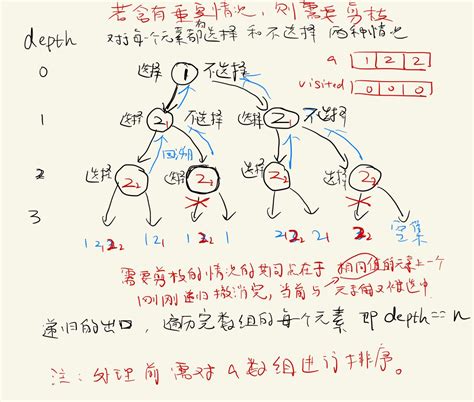 若含有重复情况，则需要剪枝
depth 对每个元素都有选择和不选择 两种情况
0 选择 1 不选择 a 1 2 2
visited 0 0 0
1 选择 2₁ 不选择 选择 2₁ 不选择
2 选择 2₂ 回溯 选择 2₂ 选择 2₂ 选择 2₂
3
1 2₁ 2₂ 1 2₁ 1 2₂ 1 2₁ 2₂ 2₁ 2₂ 空集
需要剪枝的情况的共同点在于 相同值的元素上一个
刚刚递归撤消完，当前与 元素相同又被选中
递归的出口，遍历完数组的每个元素 即 depth == n
注：处理前需对 a 数组进行排序。